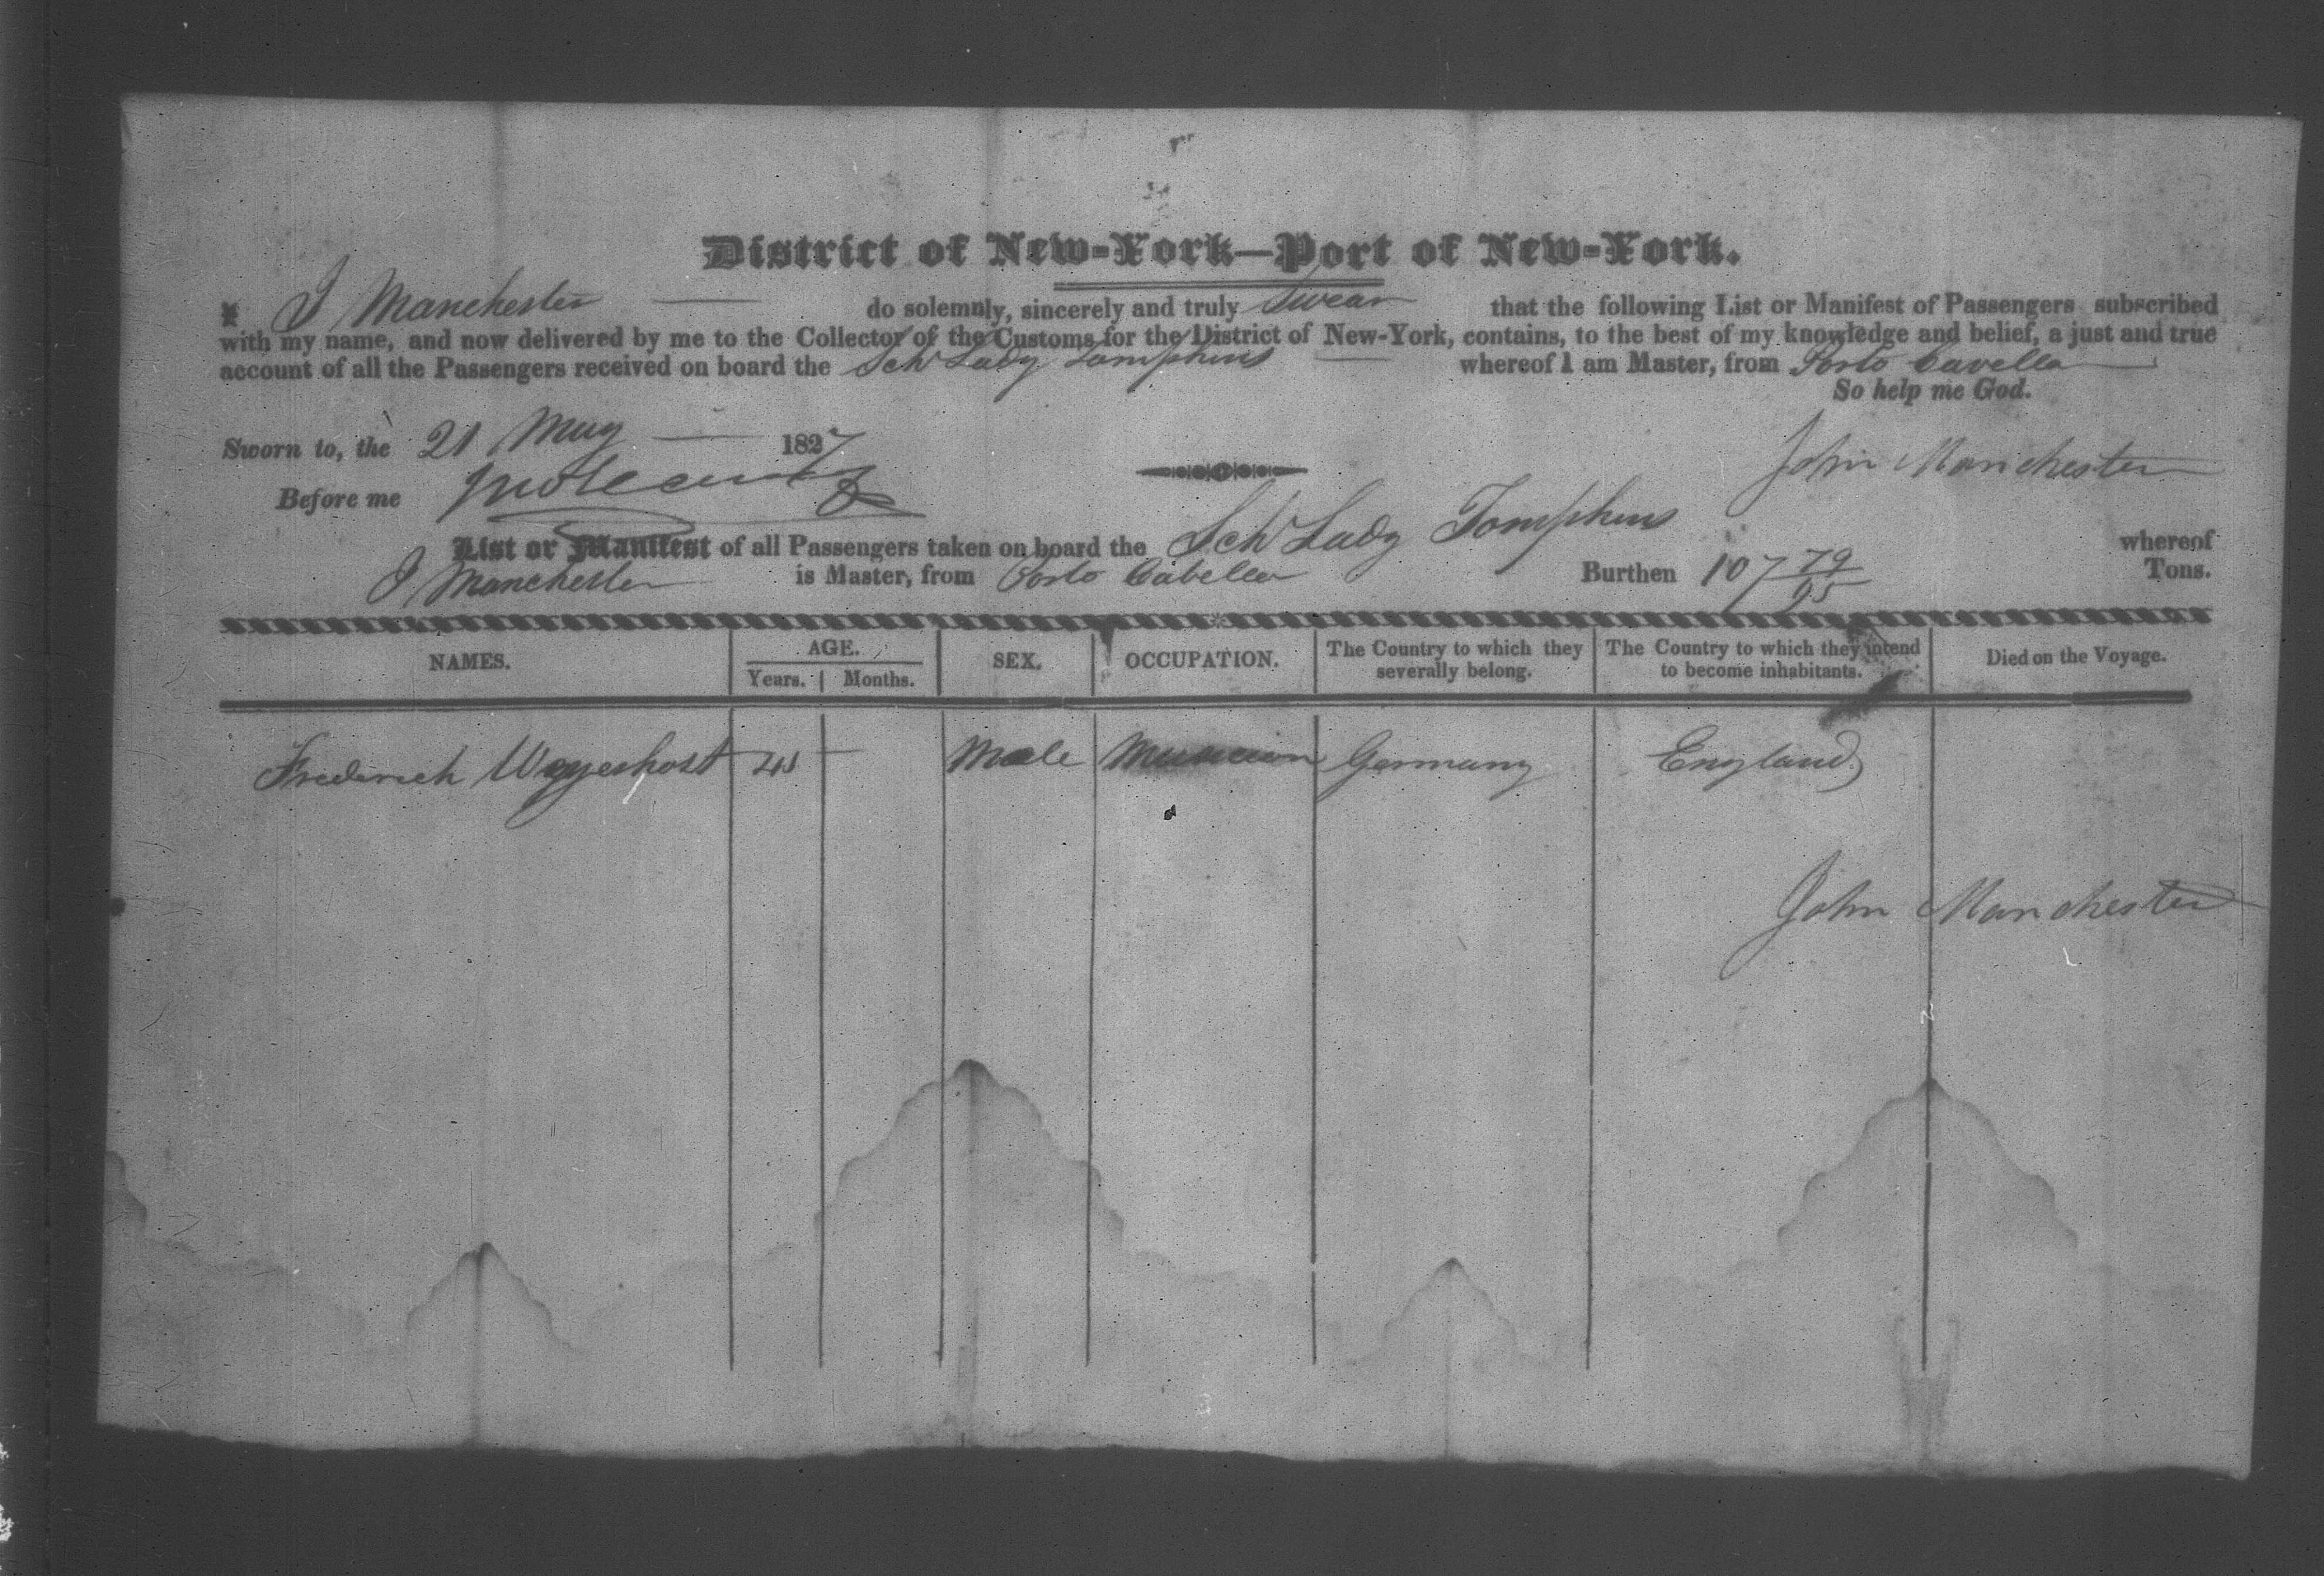 District of New-York—Port of New-York.
I, J Manchester do solemnly, sincerely and truly swear that the following List or Manifest of Passengers subscribed
with my name, and now delivered by me to the Collector of the Customs for the District of New-York, contains, to the best of my knowledge and belief, a just and true
account of all the Passengers received on board the Sch Lady Tompkins whereof I am Master, from Porto Cavello
So help me God.
Sworn to, the 21 May 1827
John Manchester
Before me
List or Manifest of all Passengers taken on board the Sch Lady Tompkins whereof
J Manchester is Master, from Porto Cabello Burthen 107 79/95 Tons.
NAMES. AGE. Years. Months. SEX. OCCUPATION. The Country to which they severally belong. The Country to which they intend to become inhabitants. Died on the Voyage.
Frederich Male Musician Germany England
John Manchester